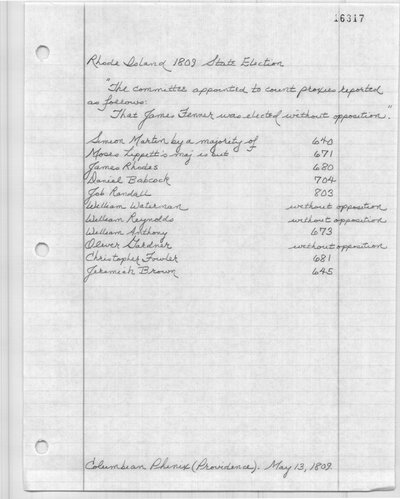 16317
Rhode Island 1809 State Election
"The committee appointed to count proxies reported
as follows:
That James Fenner was elected without opposition."
Simeon Martin by a majority of 640
Moses Lippett's maj is but 671
James Rhodes 680
Daniel Babcock 704
Job Randall 803
William Waterman without opposition
William Reynolds without opposition
William Anthony 673
Oliver Gardner without opposition
Christopher Fowler 681
Jeremiah Brown 645
Columbian Phenix (Providence). May 13, 1809.